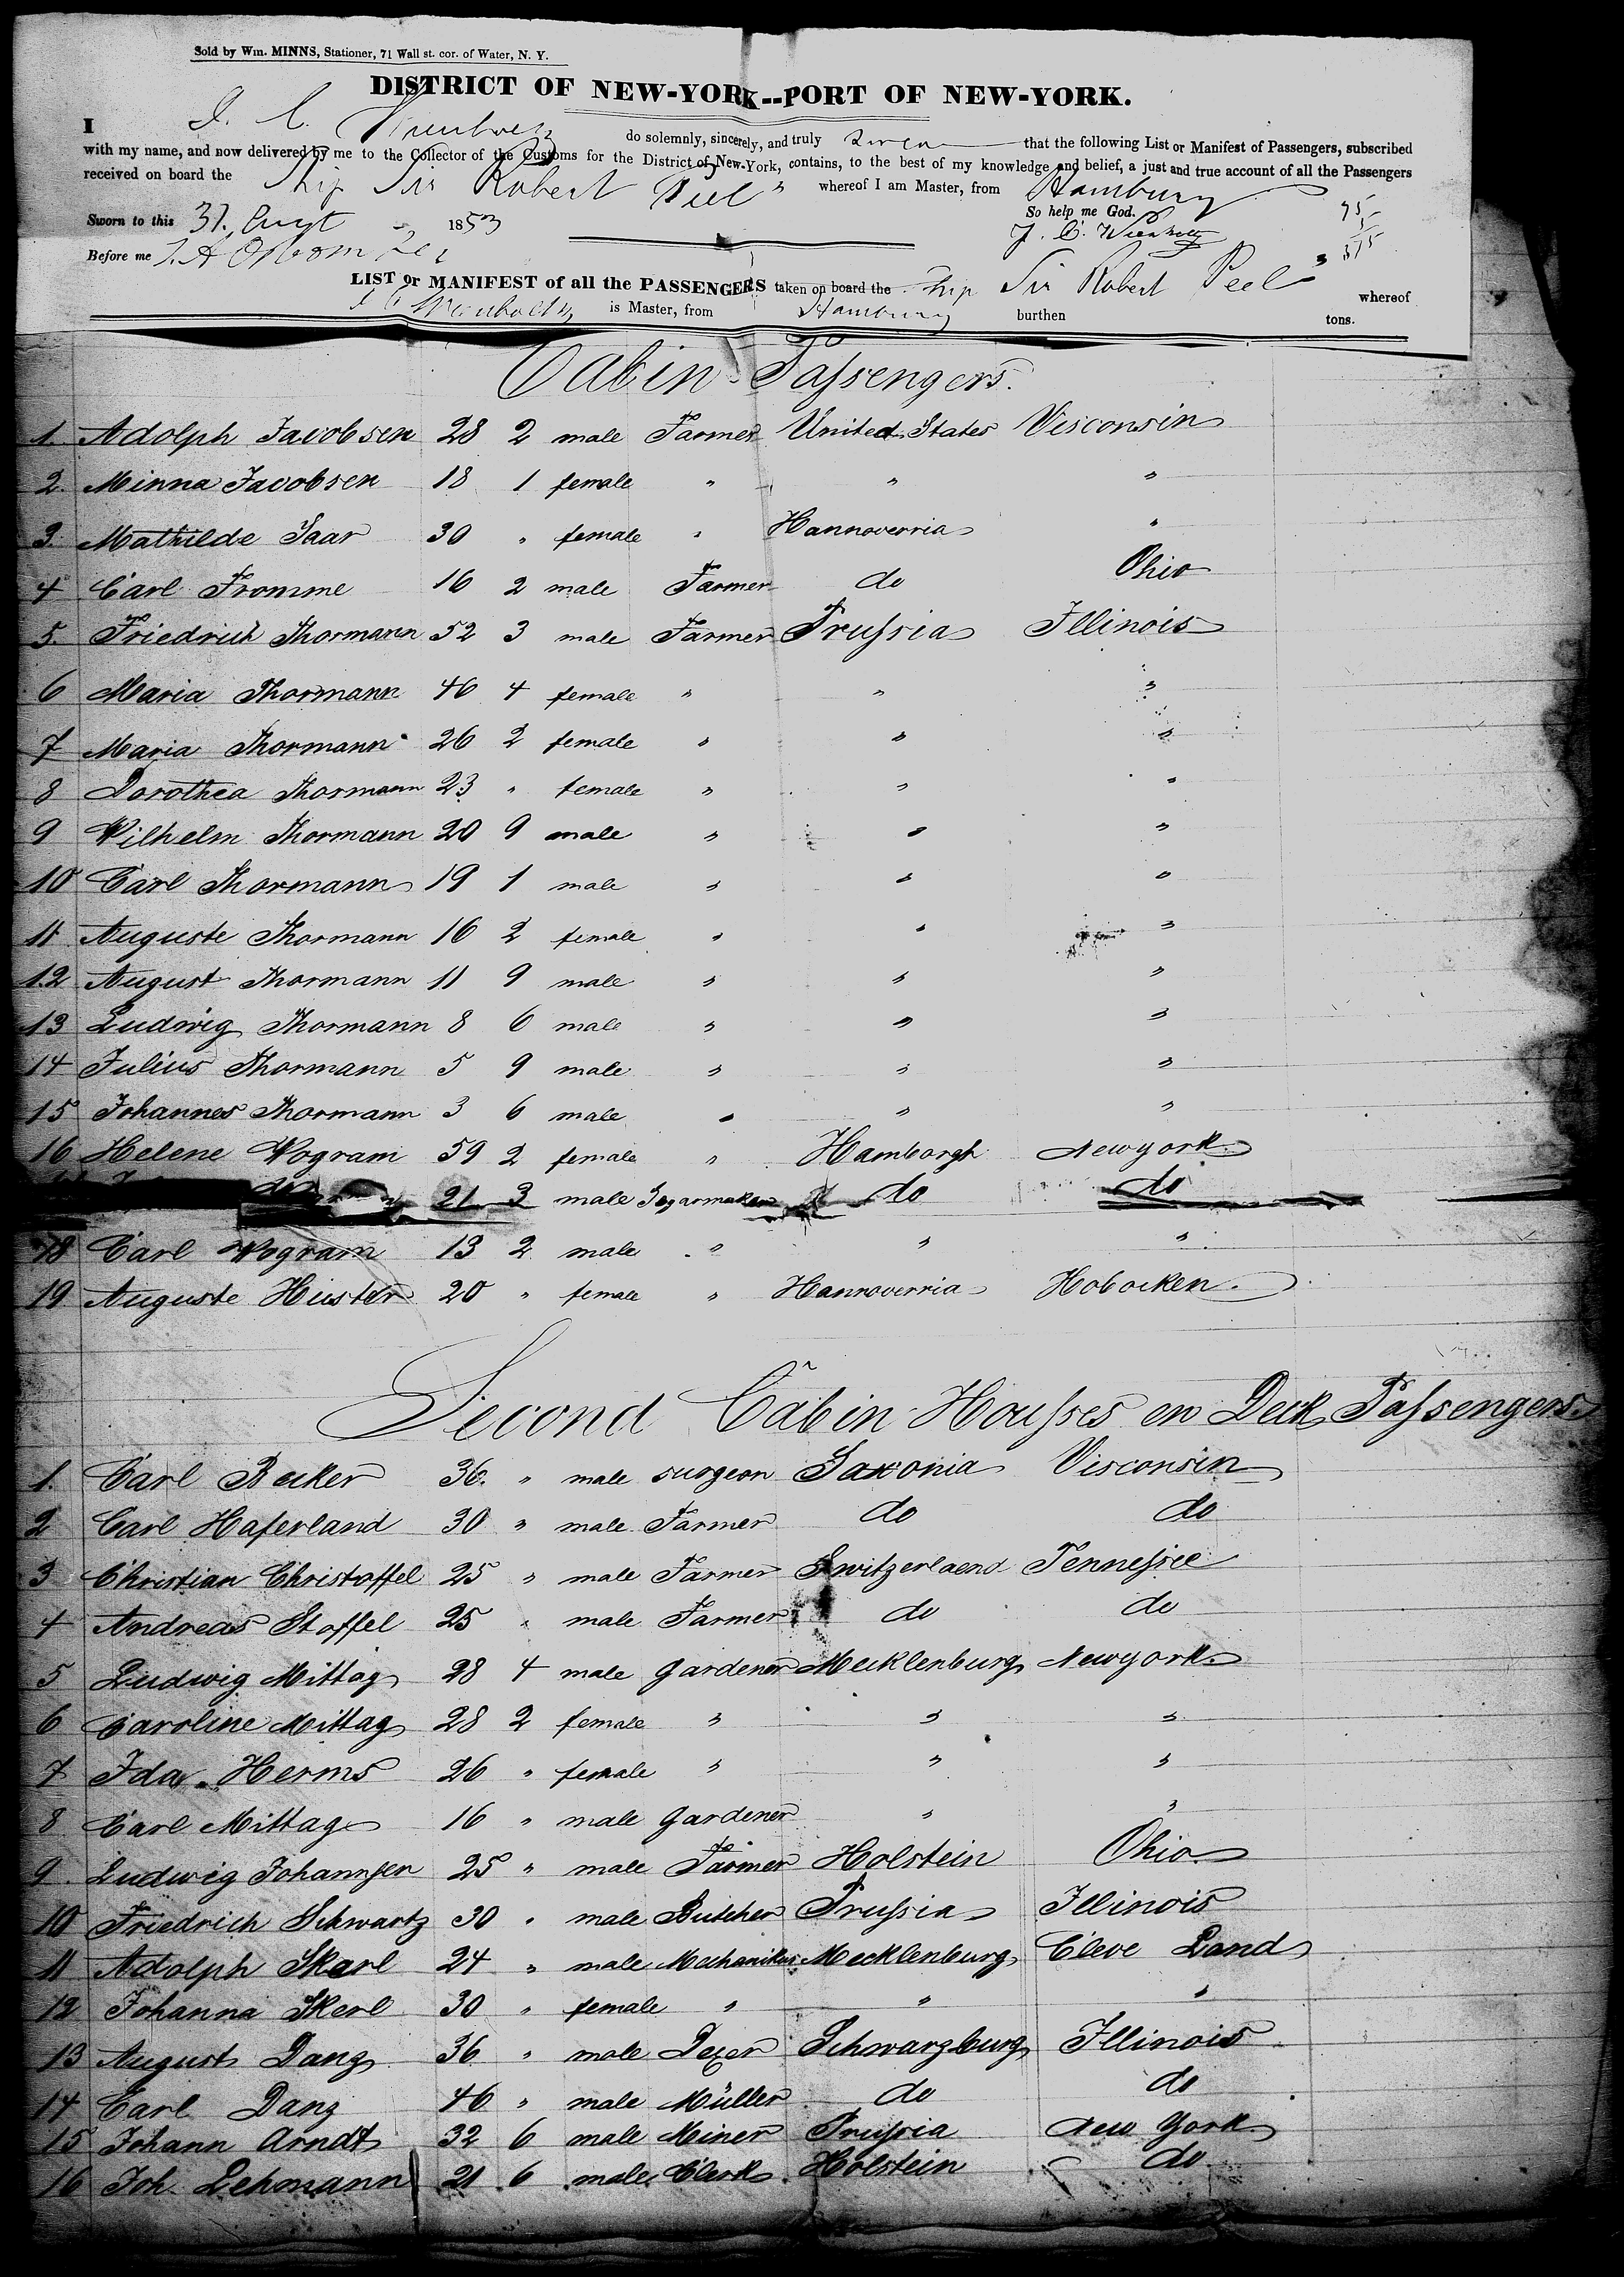 Sold by Wm. MINNS, Stationer, 71 Wall st. cor. of Water, N. Y.
DISTRICT OF NEW-YORK--PORT OF NEW-YORK.
I do solemnly, sincerely, and truly that the following List or Manifest of Passengers, subscribed
with my name, and now delivered by me to the Collector of the Customs for the District of New-York, contains, to the best of my knowledge and belief, a just and true account of all the Passengers
received on board the Ship Sir Robert Peel " whereof I am Master, from Hamburg
So help me God.
Sworn to this 31. Augt 1853
Before me
LIST or MANIFEST of all the PASSENGERS taken on board the Ship Sir Robert Peel whereof
is Master, from Hamburg burthen tons.
Cabin Passengers.
1. Adolph Jacobsen 28 2 male Farmer United States Visconsin
2. Minna Jacobsen 18 1 female " " "
3. Mathilde Saar 30 " female " Hannoverria "
4 Carl Fromme 16 2 male Farmer do Ohio
5. Friedrich Thormann 52 3 male Farmer Prussia Illinois
6 Maria Thormann 46 4 female " " "
7 Maria Thormann 26 2 female " " "
8 Dorothea Thormann 23 " female " " "
9 Vilhelm Thormann 20 9 male " " "
10 Carl Thormann 19 1 male " " "
11 Auguste Thormann 16 2 female " " "
12 August Thormann 11 9 male " " "
13 Ludwig Thormann 8 6 male " " "
14 Julius Thormann 5 9 male " " "
15 Johannes Thormann 3 6 male " " "
16 Helene Wogram 59 2 female " Hamborgh Newyork
21 3 male Segarmaker do do
18 Carl Wogram 13 2 male " " "
19 Auguste Hüster 20 " female " Hannoverria Hobocken
Second Cabin Housses on Deck Passengers
1. Carl Becker 36. " male surgeon Saxonia Visconsin
2 Carl Haferland 30 " male Farmer do do
3 Christian Christoffel 25 " male Farmer Switzerlaend Tennessee
4 Andreas Stoffel 25 " male Farmer do do
5 Ludwig Mittag 28 4 male Gardener Mecklenburg Newyork
6 Caroline Mittag 28 2 female " " "
7 Ida Herms 26 " female " " "
8 Carl Mittag 16 " male Gardener " "
9. Ludwig Johannsen 25 " male Farmer Holstein Ohio
10 Friedrich Schwartz 30 " male Butcher Prussia Illinois
11 Adolph Skerl 24 " male Mechanikus Mecklenburg Cleve Land
12 Johanna Skerl 30 " female " " "
13 August Danz 36 " male Schwarzburg Illinois
14 Carl Danz 46 " male Müller do do
15 Johann Arndt 32 6 male Miner Prussia New York
16 Joh. Lehmann 21 6 male Clerk Holstein do